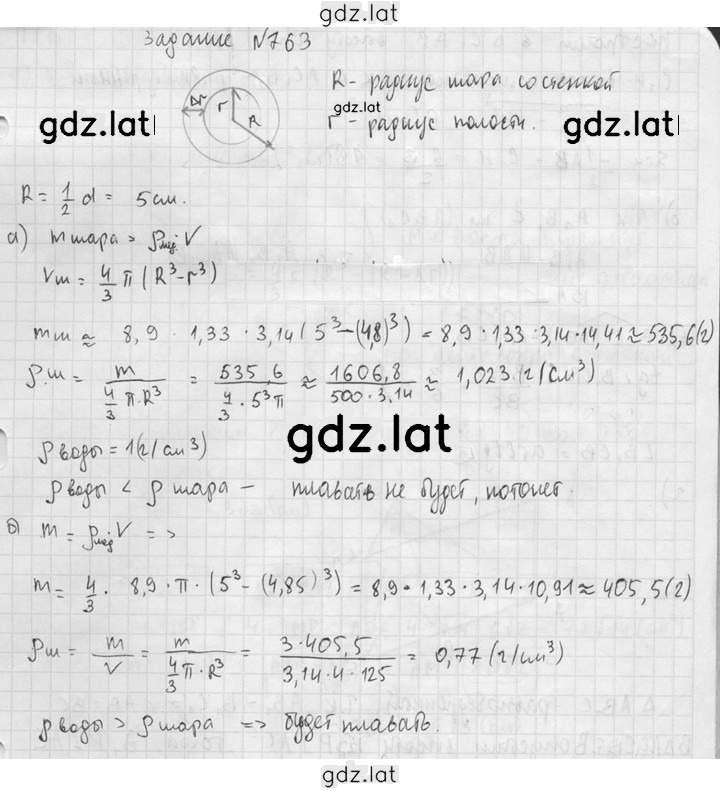 gdz.lat
Задание №763
R - радиус шара со стенкой
gdz.lat
r - радиус полости.
Δr r R
gdz.lat
gdz.lat
R = 1/2 d = 5см.
а) m шара = ρмед V
Vш = 4/3 π (R³-r³)
mш ≈ 8,9 · 1,33 · 3,14 (5³-(4,8)³) = 8,9 · 1,33 · 3,14 · 14,41 ≈ 535,6(г)
ρш = m / (4/3 π R³) = 535,6 / (4/3 · 5³π) ≈ 1606,8 / (500 · 3,14) ≈ 1,023 (г/см³)
gdz.lat
ρ воды = 1(г/см³)
ρ воды < ρ шара - плавать не будет, потонет.
б) m = ρмед V =>
m = 4/3 · 8,9 · π · (5³-(4,85)³) = 8,9 · 1,33 · 3,14 · 10,91 ≈ 405,5(г)
ρш = m/V = m / (4/3 π · R³) = 3·405,5 / (3,14·4·125) = 0,77 (г/см³)
ρ воды > ρ шара => будет плавать.
gdz.lat